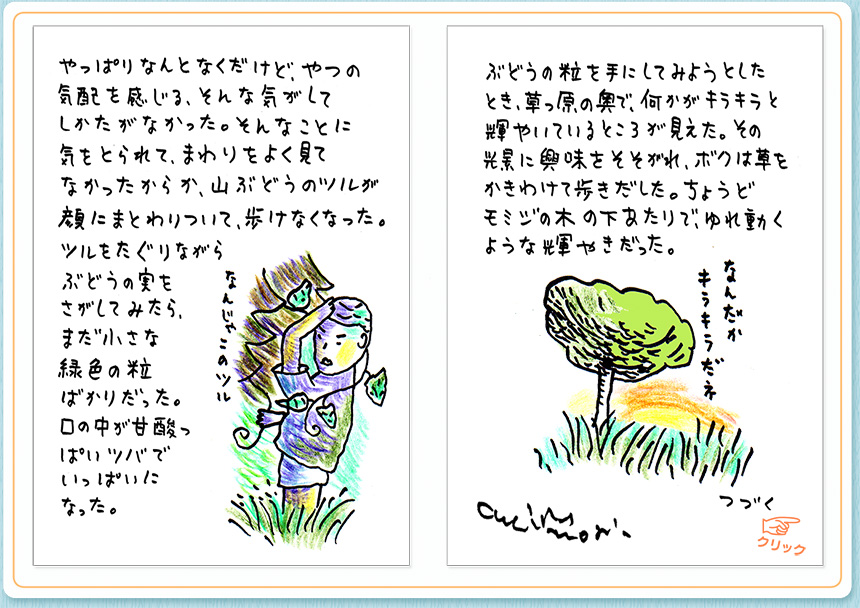 やっぱりなんとなくだけど、やつの
気配を感じる、そんな気がして
しかたがなかった。そんなことに
気をとられて、まわりをよく見て
なかったからか、山ぶどうのツルが
顔にまとわりついて、歩けなくなった。
ツルをたぐりながら
ぶどうの実を
さがしてみたら、
まだ小さな
緑色の粒
ばかりだった。
口の中が甘酸っ
ぱいツバで
いっぱいに
なった。
なんじゃこのツル
ぶどうの粒を手にしてみようとした
とき、草っ原の奥で、何かがキラキラと
輝やいているところが見えた。その
光景に興味をそそがれ、ボクは草を
かきわけて歩きだした。ちょうど
モミジの木の下あたりで、ゆれ動く
ような輝やきだった。
なんだか
キラキラだネ
つづく
クリック